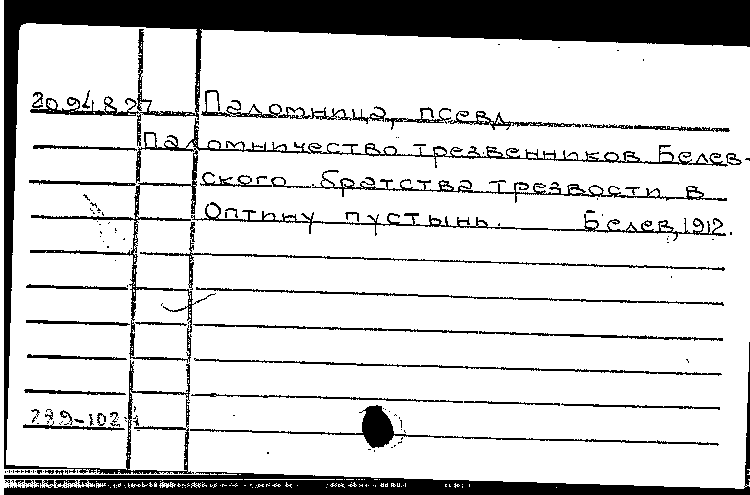 20.94.8.27 Паломница, псевд.
Паломничество трезвенников Белев-
ского братства трезвости в
Оптину пустынь. Белев, 1912.
289-102